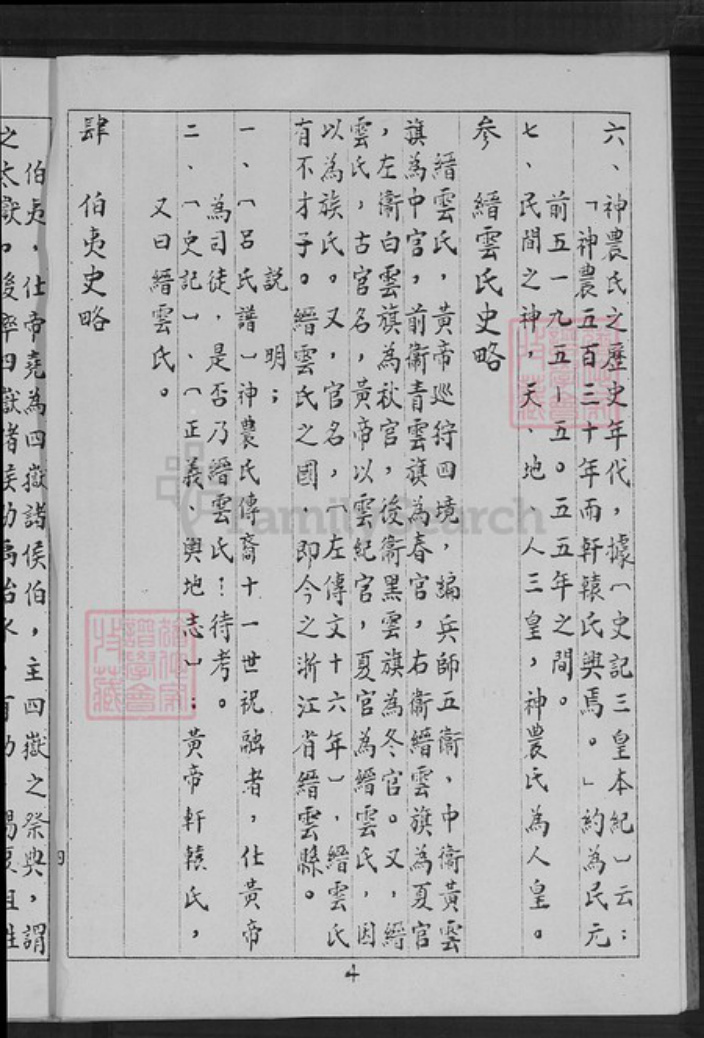 六、神農氏之歷史年代，據︹史記三皇本紀︺云：
「神農五百三十年而軒轅氏興焉。」約為民元
前五一九五－五〇五五年之間。
七、民間之神，天、地、人三皇，神農氏為人皇。
參　縉雲氏史略
縉雲氏，黃帝巡狩四境，編兵師五衞、中衞黃雲
旗為中官，前衞青雲旗為春官，右衞縉雲旗為夏官
，左衞白雲旗為秋官，後衞黑雲旗為冬官。又，縉
雲氏，古官名，黃帝以雲紀官，夏官為縉雲氏，因
以為族氏。又，官名，︹左傳文十六年︺，縉雲氏
有不才子。縉雲氏之國，即今之浙江省縉雲縣。
說　明；
一、︹呂氏譜︺神農氏傳裔十一世祝融者，仕黃帝
為司徒，是否乃縉雲氏！待考。
二、︹史記︺、︹正義、輿地志︺：黃帝軒轅氏，
又曰縉雲氏。
肆　伯夷史略
4
伯夷，仕帝堯為四嶽諸侯伯，主四嶽之祭典，謂
之太嶽。後率四嶽諸侯助禹治水，有功